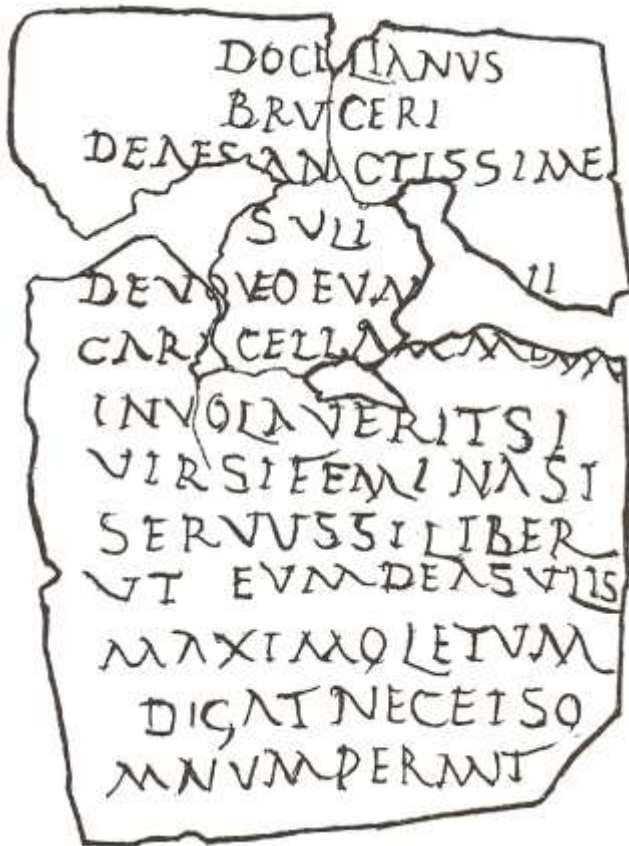 DOCILIANVS
BRVCERI
DEAESANCTISSIME
SVLI
DEVOVEO EVM
CARACELLAM
INVOLAVERITSI
VIRSIFEMINASI
SERVVSSILIBER
VT EVMDEASVLIS
MAXIMOLETVM
DIGAT NECEISO
MNVMPERMIT